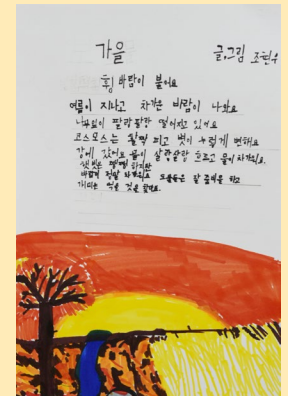 가을
글,그림 조현수
휭 바람이 불어요
여름이 지나고 차가운 바람이 나와요
나뭇잎이 팔랑팔랑 떨어지고 있어요
코스모스는 활짝 피고 벼가 누렇게 변해요
강에 갔어요 물이 살랑살랑 흐르고 물이 차가워요.
햇빛은 쨍쨍 하지만
바람이 정말 차가워요 동물들은 잘 준비를 하고
개미는 먹을 것을 찾아요.